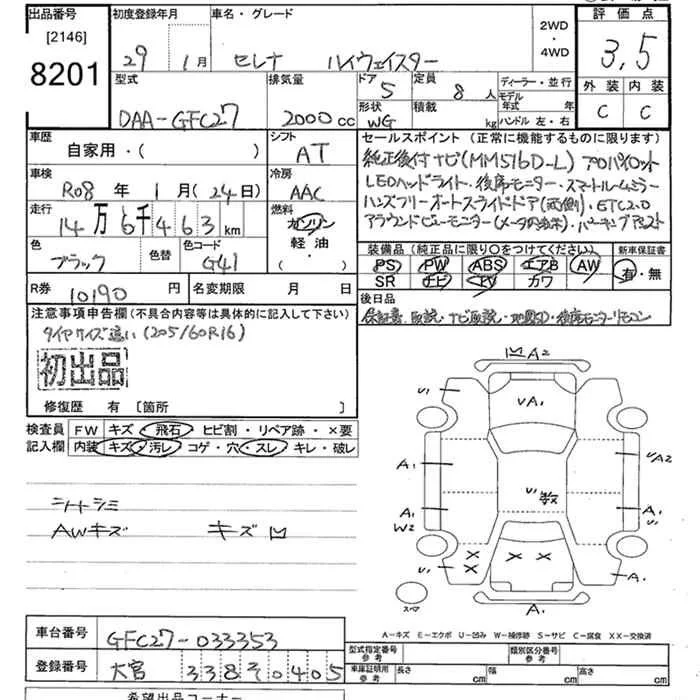 出品番号 初度登録年月 車名・グレード 評価点
[2146] 2WD
8201 29 1月 セレナ ハイウェイスター ・ 3,5
4WD
型式 排気量 ドア 定員 ディーラー・並行 外装 内装
DAA-GFC27 2000cc 5 8人 モデル年式 年 C C
形状 WG 積載 kg ハンドル 左・右
車歴 シフト セールスポイント (正常に機能するものに限ります)
自家用・( ) AT 純正後付ナビ(MM516D-L) プロパイロット
車検 冷房 LEDヘッドライト・後席モニター・スマートルームミラー
R08年 1月 (24日) AAC ハンズフリーオートスライドドア(両側)・ETC2.0
走行 燃料 アラウンドビューモニター
14万6千463km ガソリン
軽油
・( )
色 色替 色コード 装備品 (純正品に限り○をつけてください) 新車保証書
ブラック G41 PS PW ABS エアB AW 有・無
SR ナビ TV カワ
R券 10190円 名変期限 月 日 後日品
注意事項申告欄 (不具合内容等は具体的に記入して下さい) 保証書 取説・ナビ取説・地図SD・後席モニターリモコン
タイヤサイズ違い(205/60R16)
初出品
修復歴 有 [箇所 ]
検査員 FW キズ・飛石・ヒビ割・リペア跡・×要
記入欄 内装 キズ・汚レ・コゲ・穴・スレ・キレ・破レ
シートシミ
AWキズ キズ凹
凹A2
U1
VA1
A1
UA2
U1
A1
W2
A1
U1
× × × ×
U1
A1
A1
スペア
A-キズ E-エクボ U-凹み W-補修跡 S-サビ C-腐食 XX-交換済
車台番号 GFC27-033353
登録番号 大宮 338
型式指定番号 参考 類別区分番号 参考
車庫証明用 参考 長さ cm 幅 cm 高さ cm
希望出品コーナー